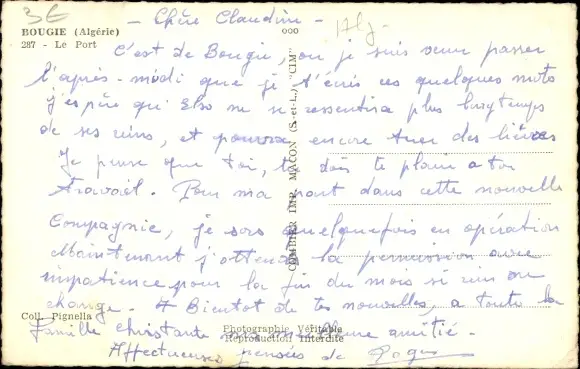 3E
- Chère Claudine -
Alg
BOUGIE (Algérie)
287 - Le Port
C'est de Bougie, ou je suis venu passer
l'après-midi que je t'écris ces quelques mots
j'espère qu' ne se ressentira plus longtemps
de ses reins, et pourra encore tuer des lièvres
Je pense que toi, tu dois te plaire a ton
travail. Pour ma part dans cette nouvelle
Compagnie, je sors quelquefois en opération
Maintenant j'attends la permission avec
impatience pour la fin du mois si rien ne
change. A Bientot de tes nouvelles, a toute la
Famille ma amitié -
Affectueuses pensées de Roger
COMBIER IMP. MACON (S.-et-L.) "CIM"
Coll. Pignella
Photographie Véritable
Reproduction Interdite